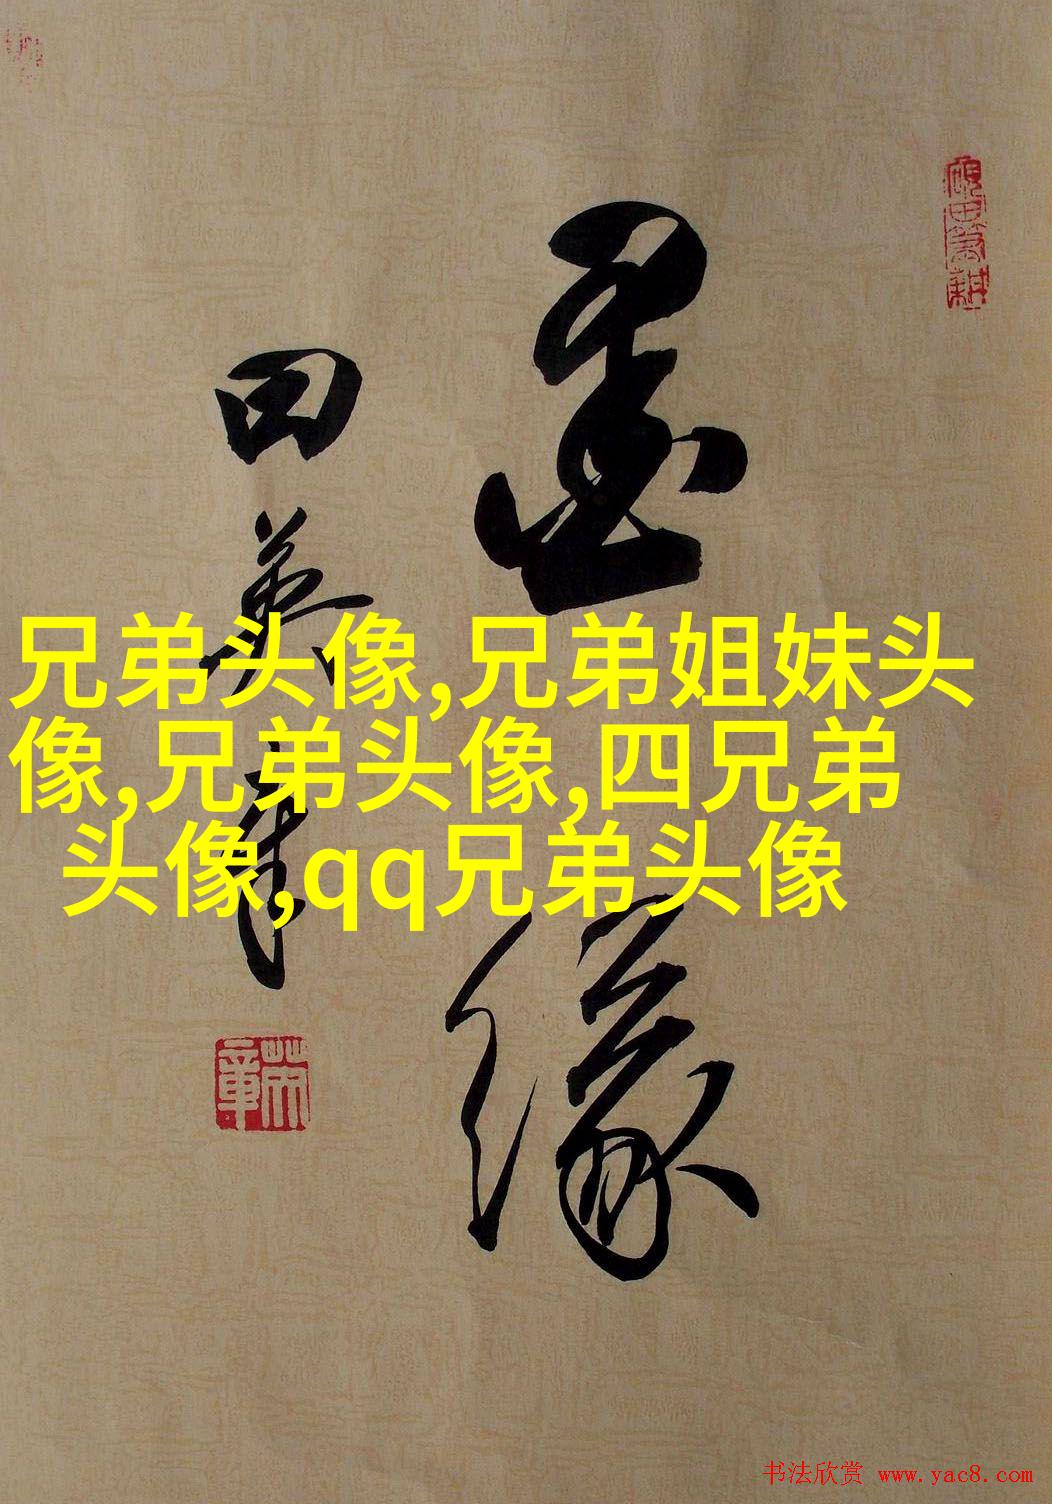 兄弟头像,兄弟姐妹头
像,兄弟头像,四兄弟
头像,qq兄弟头像
墨缘
田英章
砚田笔耕
英章
书法欣赏 www.yac8.com